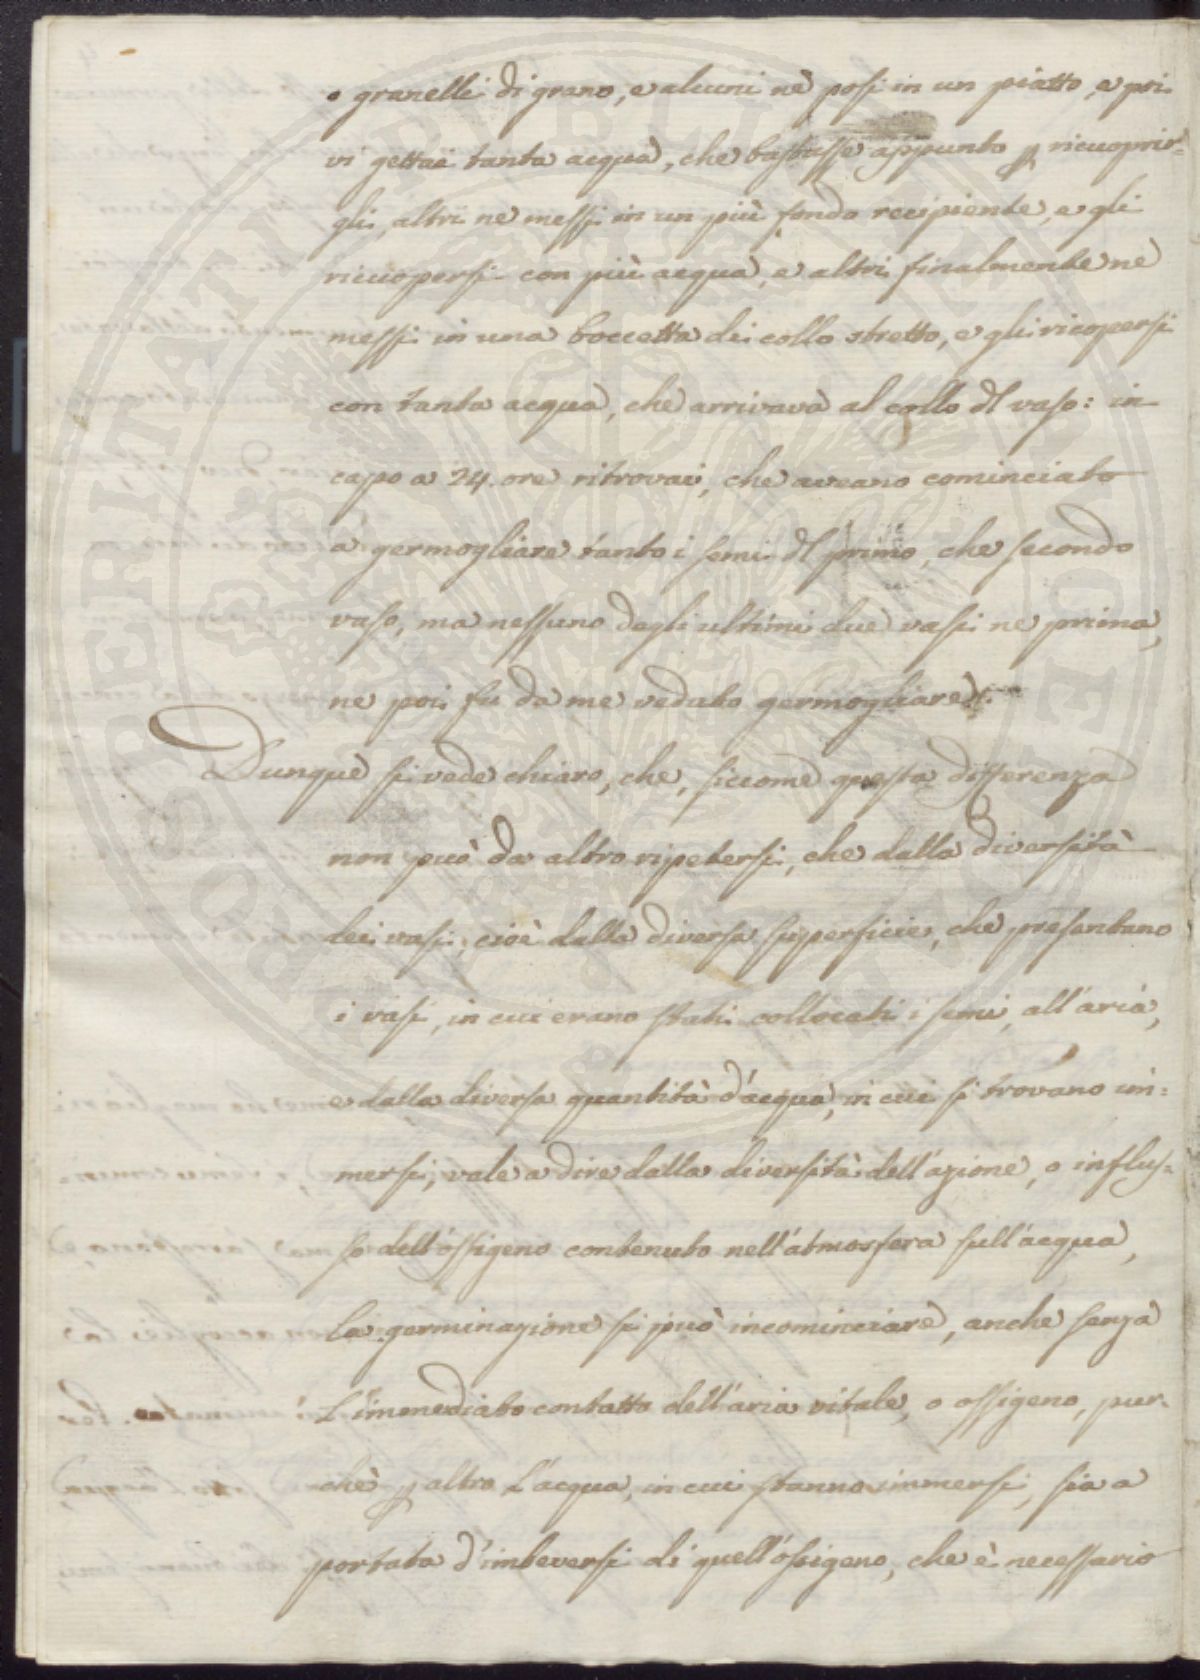 o granelli di grano, e alcuni nè posi in un piatto, e poi
vi gettai tanta acqua, che bastasse appunto p ricuoprir=
gli, altri ne messi in un più fondo recipiente, e gli
ricuopersi con più acqua, e altri finalmente ne
messi in una boccetta di collo stretto, e gli ricopersi
con tanta acqua, che arrivava al collo dl vaso: in
capo a 24. ore ritrovai, che aveano cominciato
a germogliare tanto i semi dl primo, che secondo
vaso, ma nessuno degli ultimi due vasi ne prima,
ne poi fu da me veduto germogliare.
Dunque si vede chiaro, che, siccome questa differenza
non può da altro ripetersi, che dalla diversità
dei vasi, cioè dalla diversa superficie, che presentano
i vasi, in cui erano stati collocati i semi, all'aria,
e dalla diversa quantità d'acqua, in cui si trovano im=
mersi, vale a dire dalla diversità dell'azione, o influs=
so dell'ossigeno contenuto nell'atmosfera sull'acqua,
la germinazione si può incominciare, anche senza
l'immediato contatto dell'aria vitale, o ossigeno, pur=
chè p altro l'acqua, in cui stanno immersi, sia a
portata d'imbeversi di quell'ossigeno, che è necessario
PROSPERITATI PUBLICAE